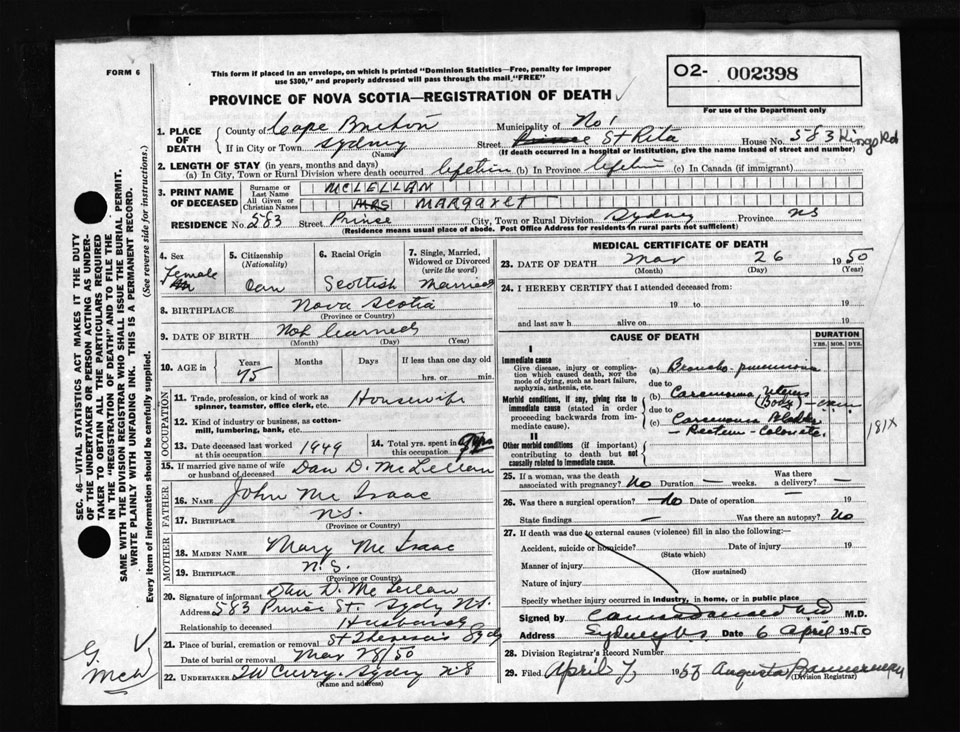 FORM 6
This form if placed in an envelope, on which is printed "Dominion Statistics—Free, penalty for improper
use $300," and properly addressed will pass through the mail "FREE"
O2- 002398
For use of the Department only
PROVINCE OF NOVA SCOTIA—REGISTRATION OF DEATH
1. PLACE OF DEATH
County of Cape Breton Municipality of No 1
If in City or Town Sydney Street St Rita House No. 583 Kings Rd
(Name) (If death occurred in a hospital or institution, give the name instead of street and number)
2. LENGTH OF STAY (in years, months and days)
(a) In City, Town or Rural Division where death occurred lifetime (b) In Province lifetime (c) In Canada (if immigrant)
3. PRINT NAME OF DECEASED
Surname or Last Name MCLELLAN
All Given or Christian Names MRS MARGARET
RESIDENCE No. 583 Street Prince City, Town or Rural Division Sydney Province NS
(Residence means usual place of abode. Post Office Address for residents in rural parts not sufficient)
4. Sex Female
5. Citizenship (Nationality) Can
6. Racial Origin Scottish
7. Single, Married, Widowed or Divorced (write the word) Married
8. BIRTHPLACE Nova Scotia
(Province or Country)
9. DATE OF BIRTH Not learned
(Month) (Day) (Year)
10. AGE in Years Months Days If less than one day old
75 hrs. or min.
OCCUPATION
11. Trade, profession, or kind of work as spinner, teamster, office clerk, etc. Housewife
12. Kind of industry or business, as cotton-mill, lumbering, bank, etc.
13. Date deceased last worked at this occupation 1949
14. Total yrs. spent in this occupation
15. If married give name of wife or husband of deceased Dan D. McLellan
FATHER
16. NAME John McIsaac
17. BIRTHPLACE N.S.
(Province or Country)
MOTHER
18. MAIDEN NAME Mary McIsaac
19. BIRTHPLACE N.S.
(Province or Country)
20. Signature of informant Dan D. McLellan
Address 583 Prince St. Sydy NS.
Relationship to deceased Husband
21. Place of burial, cremation or removal St Theresa's Sydy
Date of burial or removal Mar 28/50
22. UNDERTAKER TW Curry. Sydny NS
(Name and address)
MEDICAL CERTIFICATE OF DEATH
23. DATE OF DEATH Mar 26 1950
(Month) (Day) (Year)
24. I HEREBY CERTIFY that I attended deceased from:
19 to 19
and last saw h alive on 19
CAUSE OF DEATH
DURATION
YRS. MOS. DYS.
I
Immediate cause
Give disease, injury or complication which caused death, NOT the mode of dying, such as heart failure, asphyxia, asthenia, etc.
(a) Broncho-pneumonia
due to
Morbid conditions, if any, giving rise to immediate cause (stated in order proceeding backwards from immediate cause).
(b) Carcinoma Uterus (Body)
due to
(c) Carcinoma
- Rectum - Colon etc.
181X
II
Other morbid conditions (if important) contributing to death but not causally related to immediate cause.
25. If a woman, was the death associated with pregnancy? No Duration — weeks. Was there a delivery? —
26. Was there a surgical operation? No Date of operation — 19
State findings — Was there an autopsy? No
27. If death was due to external causes (violence) fill in also the following:—
Accident, suicide or homicide? Date of injury 19
(State which)
Manner of injury
(How sustained)
Nature of injury
Specify whether injury occurred in industry, in home, or in public place
Signed by M.D.
Address Sydney NS Date 6 April 1950
28. Division Registrar's Record Number
29. Filed April 7, 1950 Augusta Bannerman
(Division Registrar)
SEC. 46—VITAL STATISTICS ACT MAKES IT THE DUTY
OF THE UNDERTAKER OR PERSON ACTING AS UNDER-
TAKER TO OBTAIN ALL THE PARTICULARS REQUIRED
IN THE "REGISTRATION OF DEATH" AND TO FILE THE
SAME WITH THE DIVISION REGISTRAR WHO SHALL ISSUE THE BURIAL PERMIT.
WRITE PLAINLY WITH UNFADING INK. THIS IS A PERMANENT RECORD.
Every item of information should be carefully supplied. (See reverse side for instructions.)